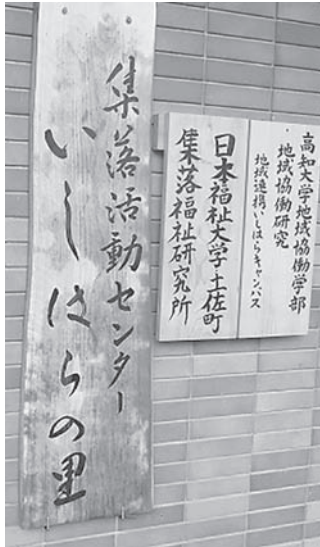 高知大学地域協働学部
地域協働研究
地域連携いしはらキャンパス
日本福祉大学土佐町
集落福祉研究所
集落活動センター
いしはらの里